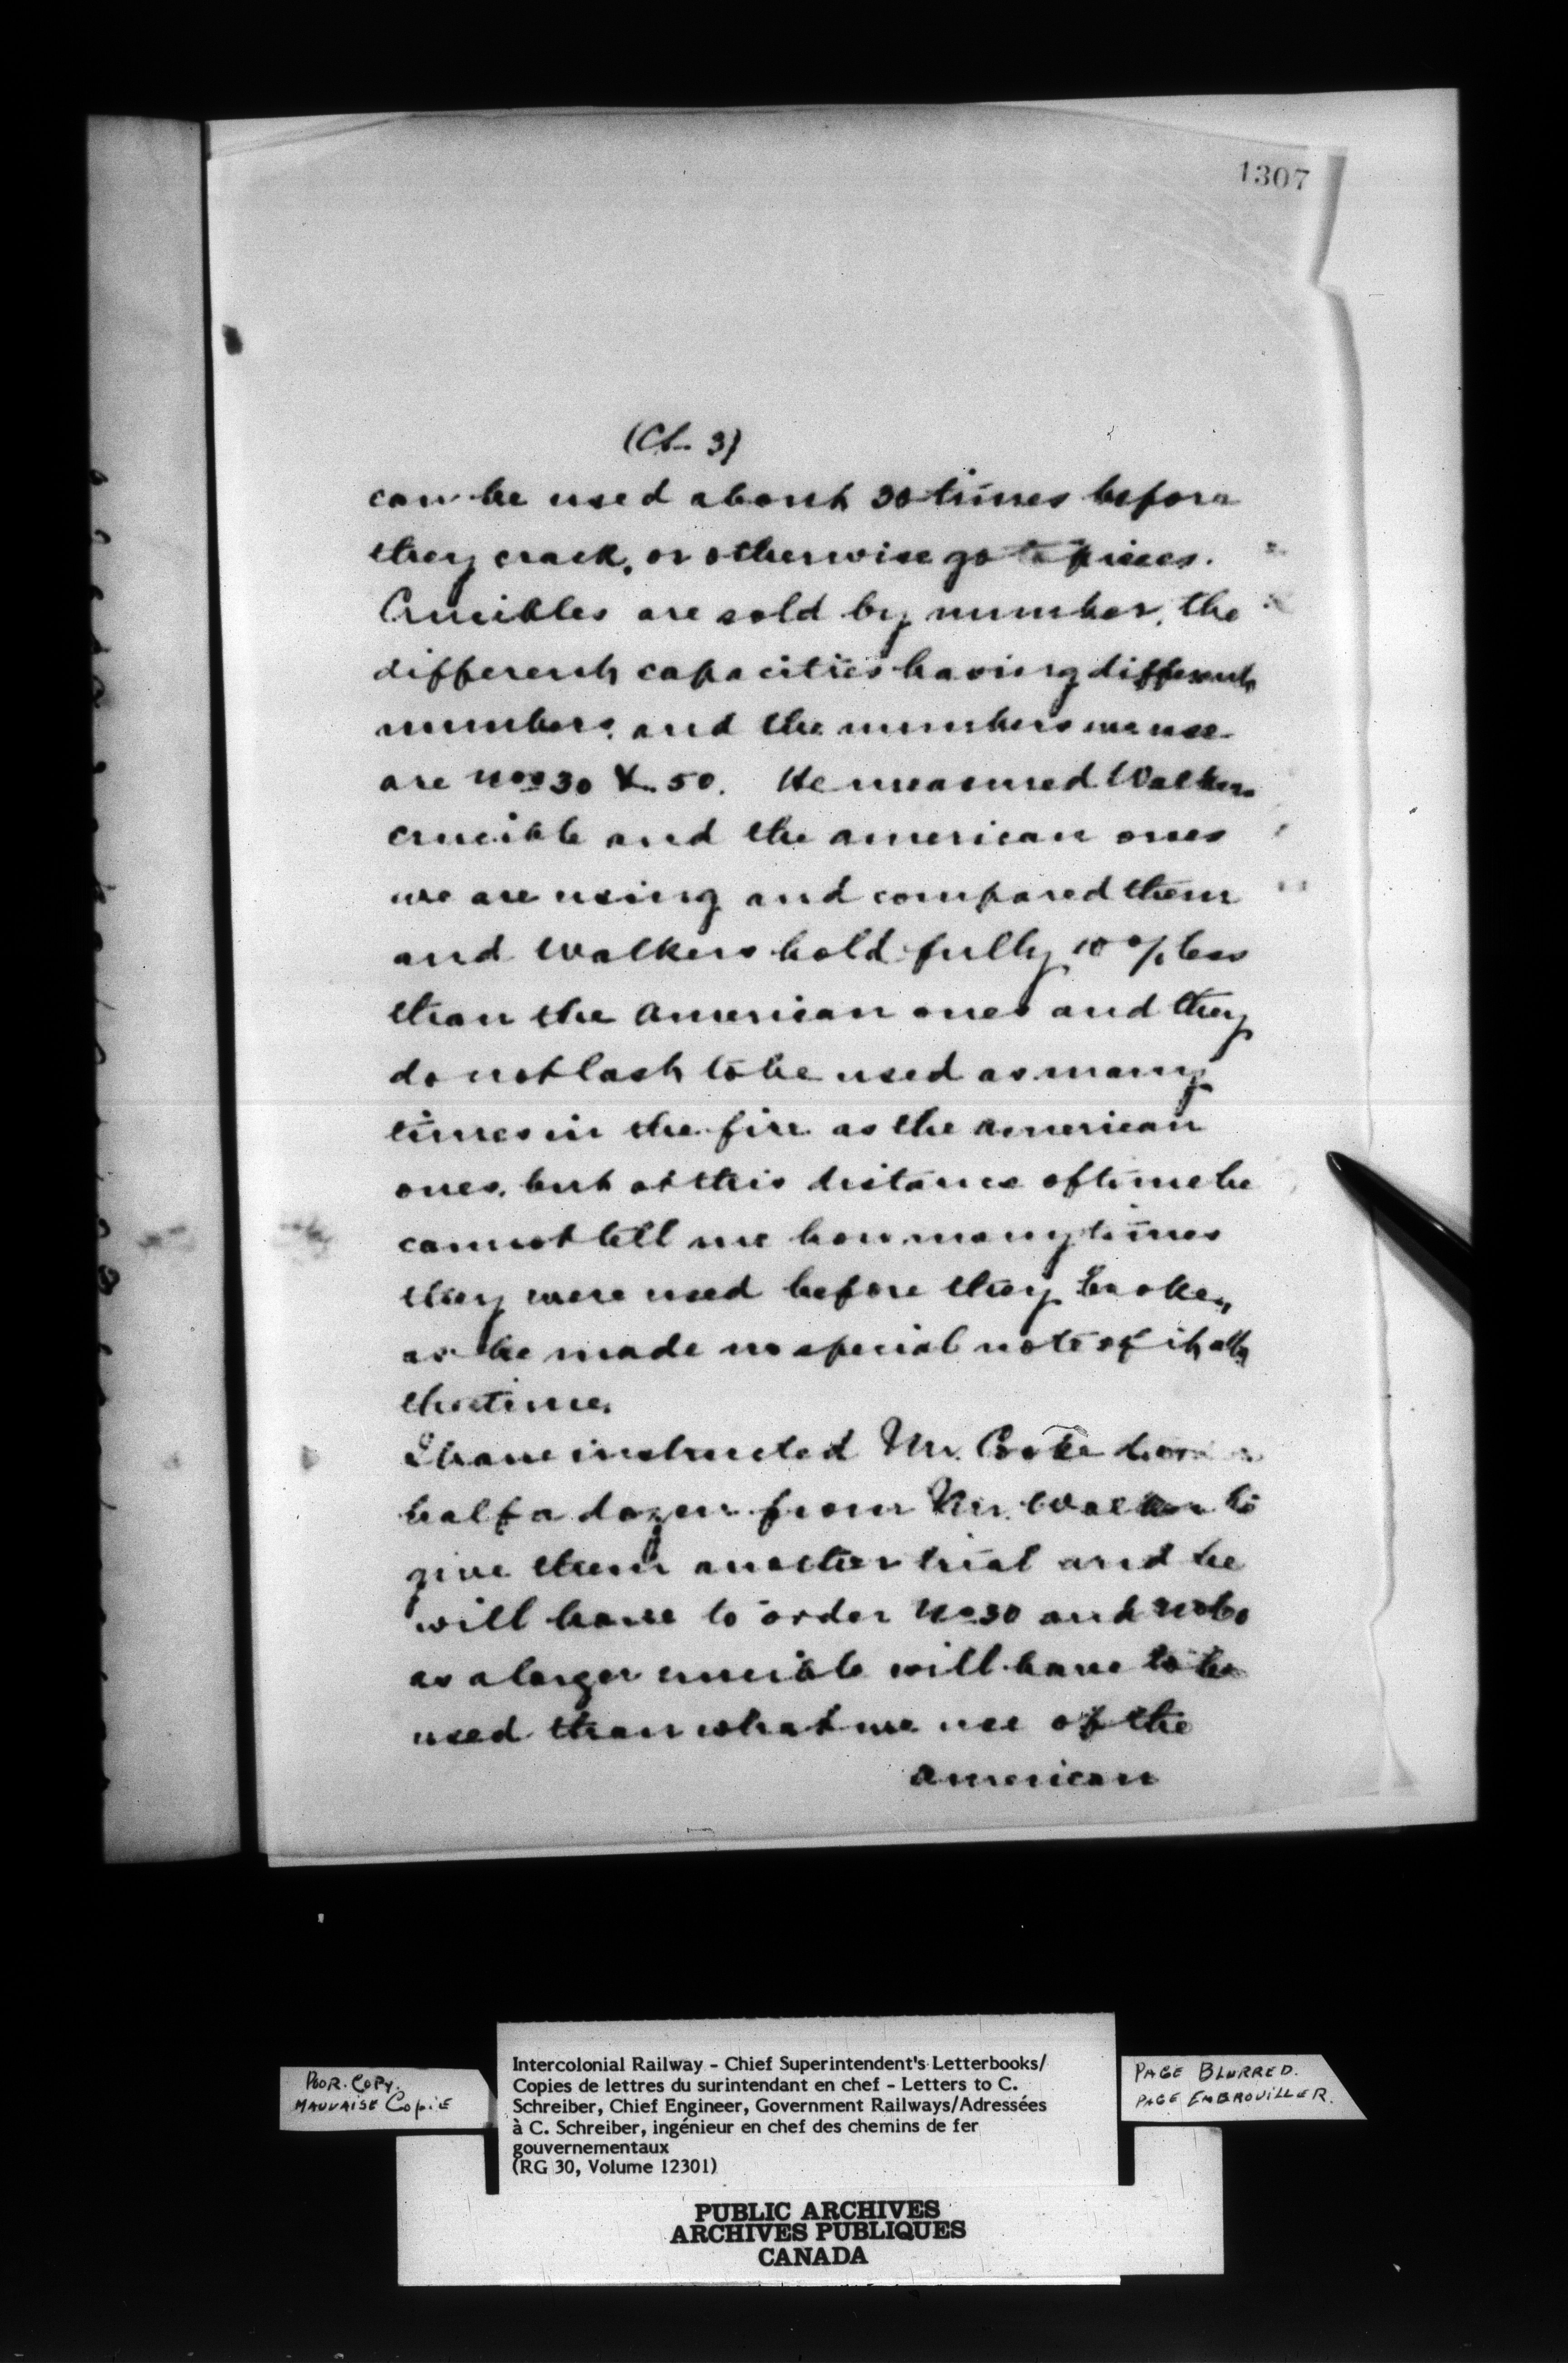 1307
(Ch. 3)
can be used about 30 times before
they crack, or otherwise go to pieces.
Crucibles are sold by number, the
different capacities having different
numbers, and the numbers we use
are Nos 30 & 50. He measured Walkers
crucible and the American ones
we are using and compared them
and Walkers hold fully 10 % less
than the American ones and they
do not last to be used as many
times in the fire as the American
ones, but at this distance of time he
cannot tell me how many times
they were used before they broke,
as he made no special note of it at
the time.
I have instructed Mr. Cooke
half a dozen from Mr. Walker to
give them another trial and he
will have to order No 30 and No 60
as a larger crucible will have to be
used than what we use of the
American
POOR. COPY.
MAUVAISE COPIE
Intercolonial Railway - Chief Superintendent's Letterbooks/
Copies de lettres du surintendant en chef - Letters to C.
Schreiber, Chief Engineer, Government Railways/Adressées
à C. Schreiber, ingénieur en chef des chemins de fer
gouvernementaux
(RG 30, Volume 12301)
PAGE BLURRED.
PAGE EMBROUILLER.
PUBLIC ARCHIVES
ARCHIVES PUBLIQUES
CANADA